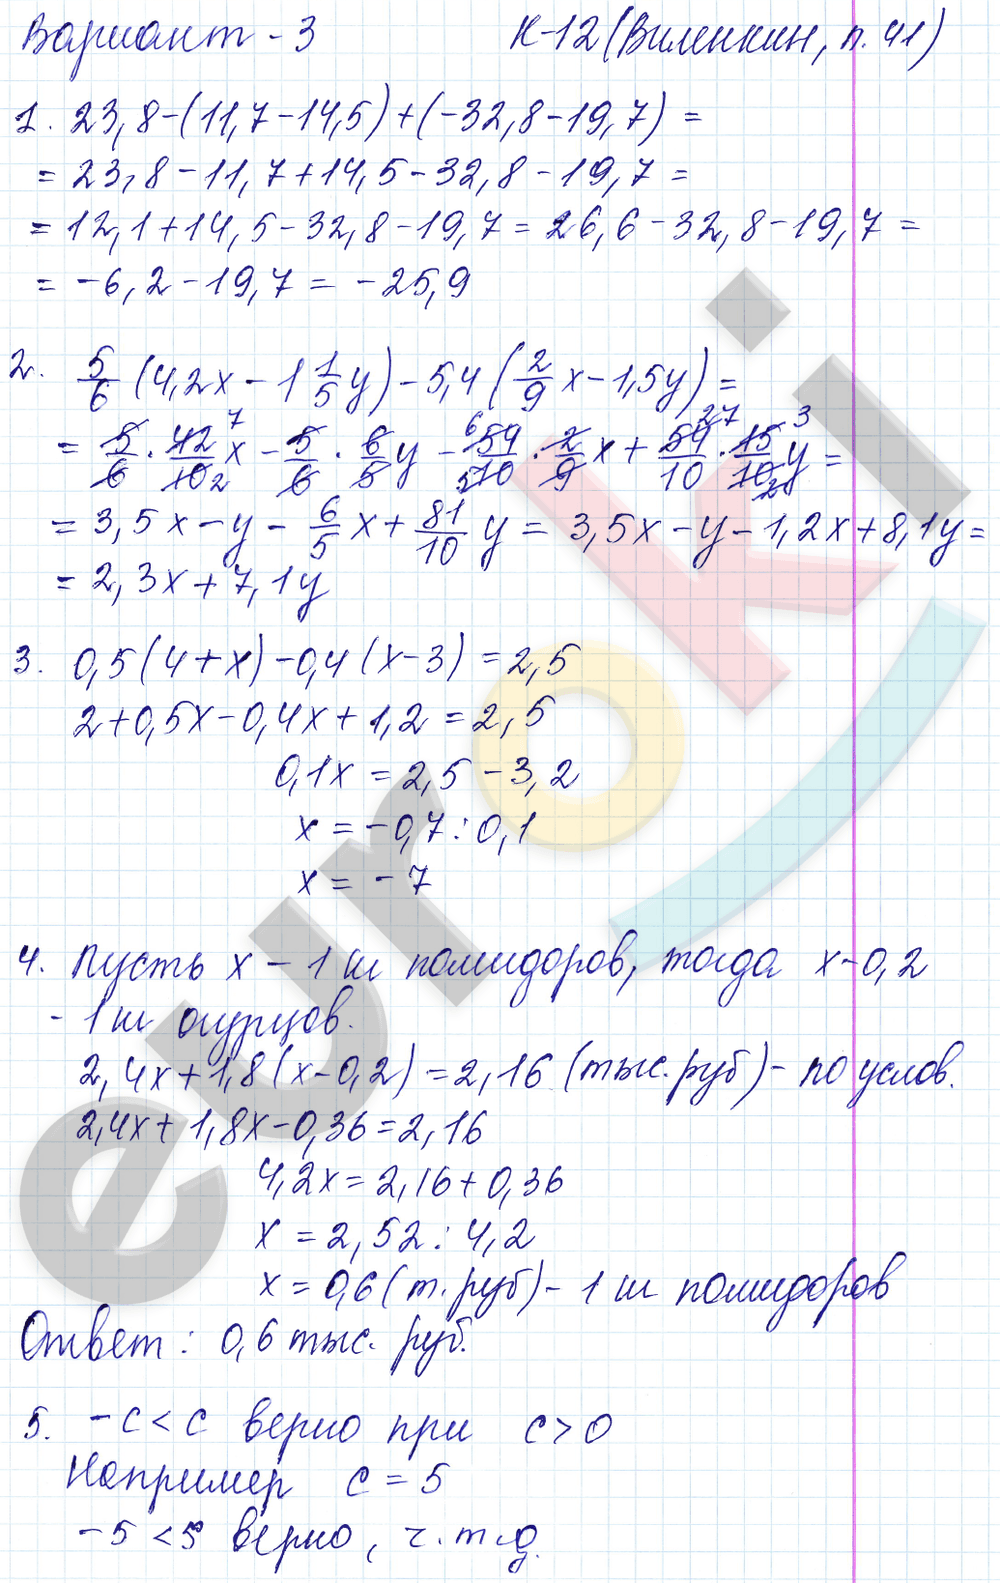 Вариант - 3 К-12 (Виленкин, п. 41)
1. 23,8-(11,7-14,5)+(-32,8-19,7) =
= 23,8-11,7+14,5-32,8-19,7 =
= 12,1+14,5-32,8-19,7 = 26,6-32,8-19,7 =
= -6,2-19,7 = -25,9
2. 5/6 (4,2x - 1 1/5 y) - 5,4 (2/9 x - 1,5y) =
= 5/6 · 42/10 x - 5/6 · 6/5 y - 54/10 · 2/9 x + 54/10 · 15/10 y =
= 3,5x - y - 6/5 x + 81/10 y = 3,5x - y - 1,2x + 8,1y =
= 2,3x + 7,1y
3. 0,5(4+x) - 0,4(x-3) = 2,5
2+0,5x-0,4x+1,2 = 2,5
0,1x = 2,5 - 3,2
x = -0,7 : 0,1
x = -7
4. Пусть x - 1 ш помидоров, тогда x-0,2
- 1 ш огурцов.
2,4x+1,8(x-0,2) = 2,16 (тыс. руб) - по услов.
2,4x+1,8x-0,36 = 2,16
4,2x = 2,16+0,36
x = 2,52 : 4,2
x = 0,6 (т. руб) - 1 ш помидоров
Ответ: 0,6 тыс. руб.
5. -c < c верно при c > 0
Например c = 5
-5 < 5 верно, ч.т.д.
euroki